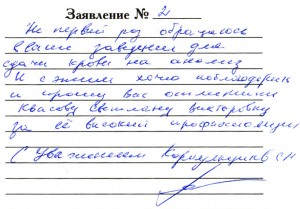 Заявление № 2
Не первый раз обращаюсь
в Ваше заведение для
сдачи крови на анализ
И с этим хочу поблагодарить
и прошу вас отметить
Квасову Светлану Викторовну
за её высокий профессионализм
С Уважением С Н